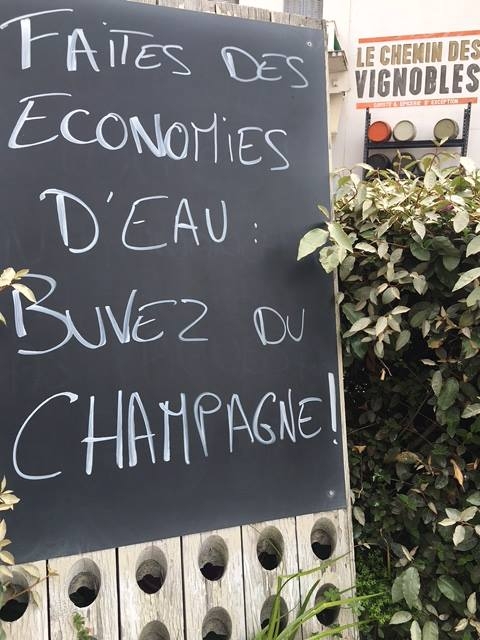 FAITES DES
ECONOMIES
D'EAU :
BUVEZ DU
CHAMPAGNE!
LE CHEMIN DES
VIGNOBLES
CAVISTE & EPICERIE D'EXCEPTION